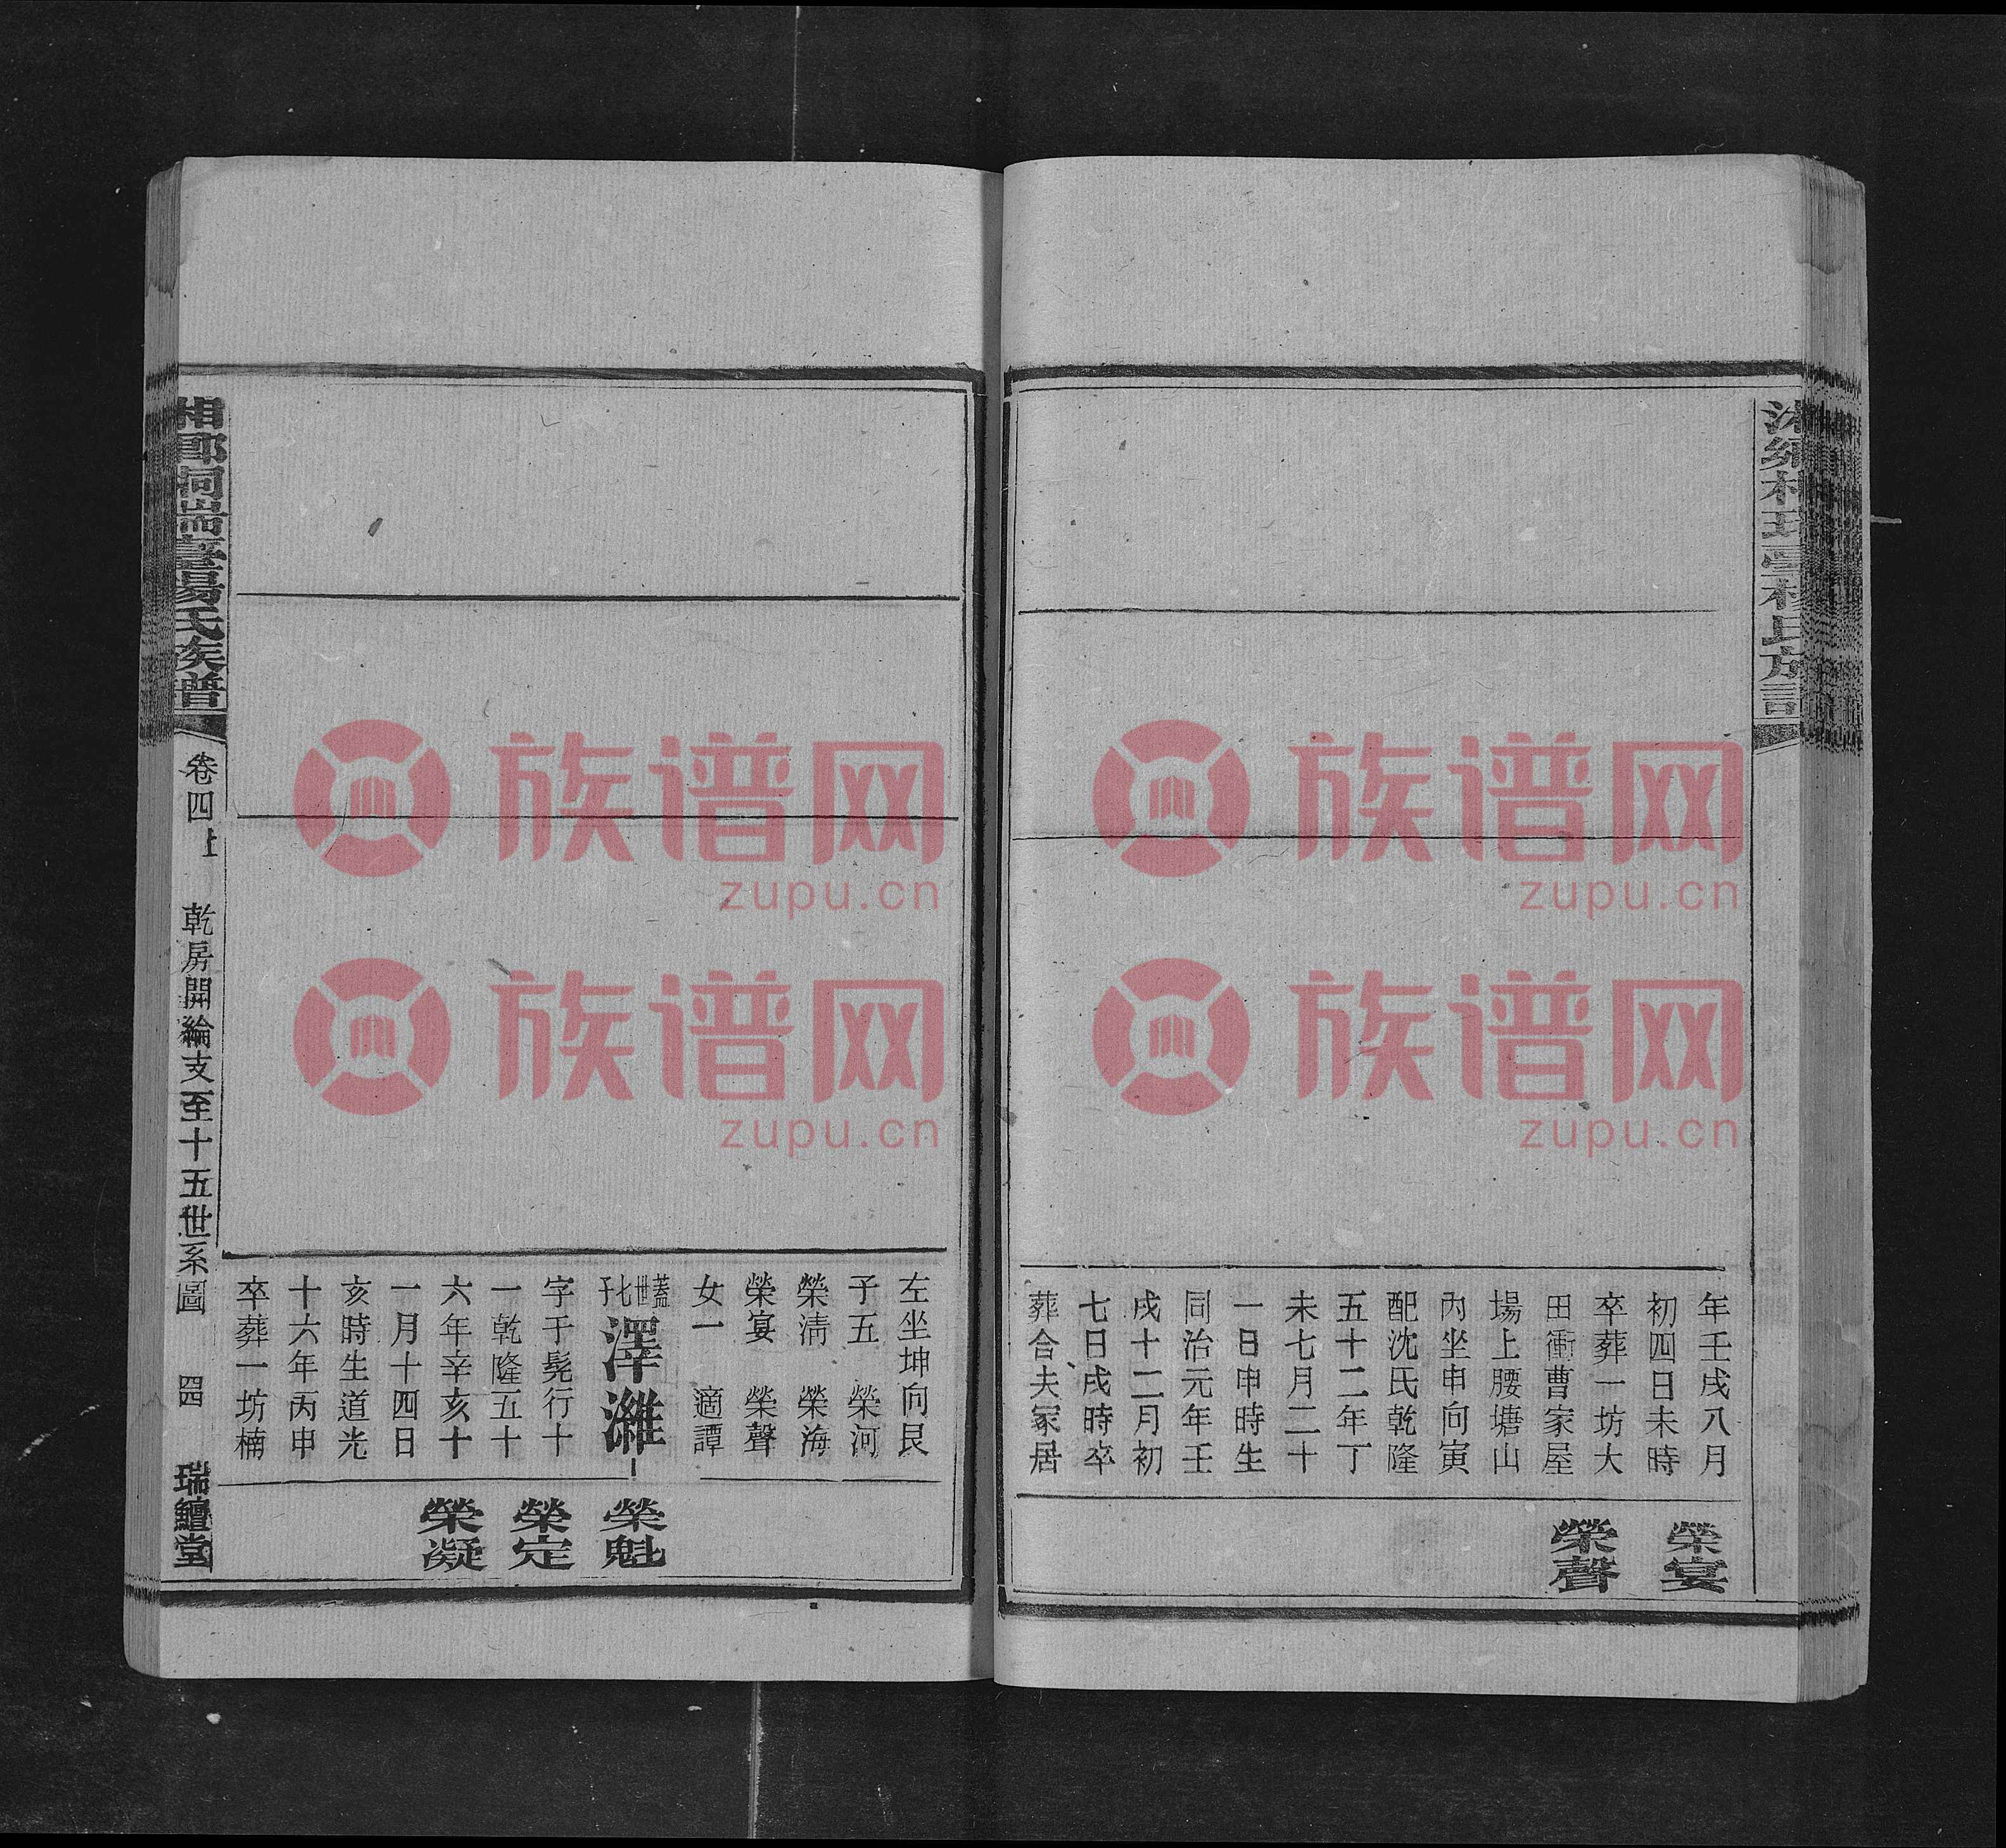 年壬戌八月
初四日未時
卒葬一坊大
田衝曹家屋
場上腰塘山
內坐申向寅
配沈氏乾隆
五十二年丁
未七月二十
一日申時生
同治元年壬
戌十二月初
七日戌時卒
葬合夫冢居
榮宴
榮聲
左坐坤向艮
子五 榮河
榮清 榮海
榮宴 榮聲
女一 適譚
蓋世七子
澤濰
字于髡行十
一乾隆五十
六年辛亥十
一月十四日
亥時生道光
十六年丙申
卒葬一坊楠
榮魁
榮定
榮凝
氏族譜
卷四上
乾房開綸支至十五世系圖
四
瑞鱣堂
族谱网
zupu.cn
族谱网
zupu.cn
族谱网
zupu.cn
族谱网
zupu.cn